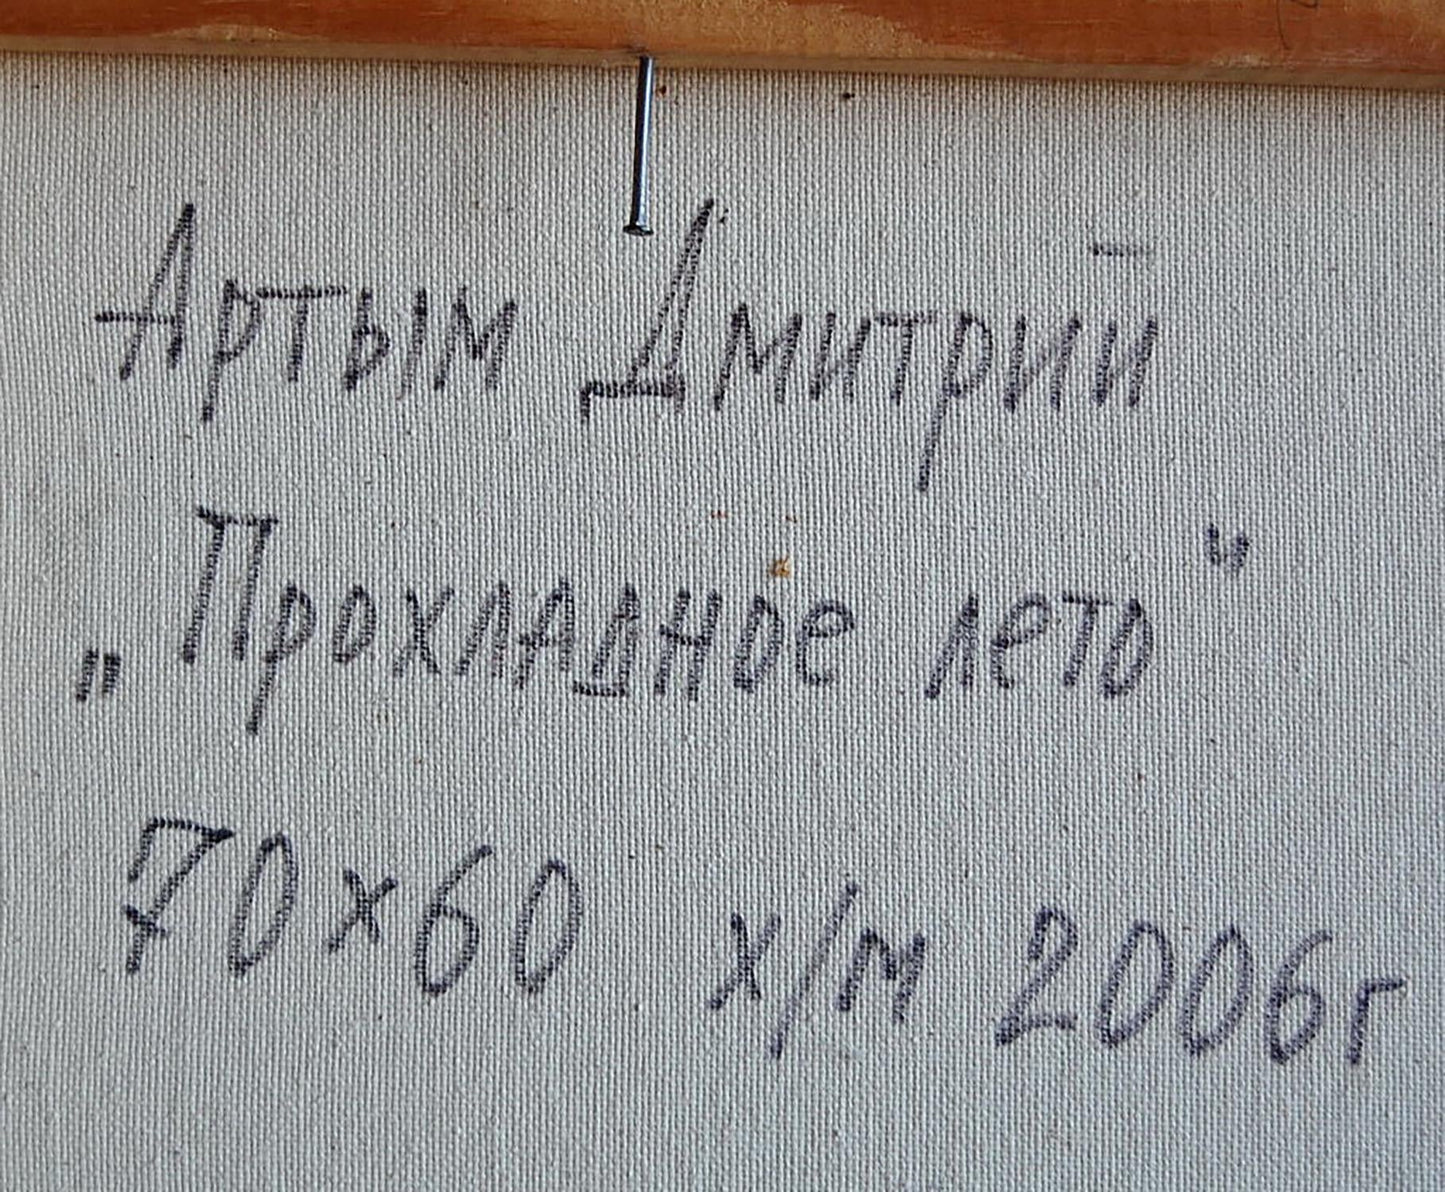 Артым Дмитрий
„Прохладное лето"
70×60 х/м 2006г